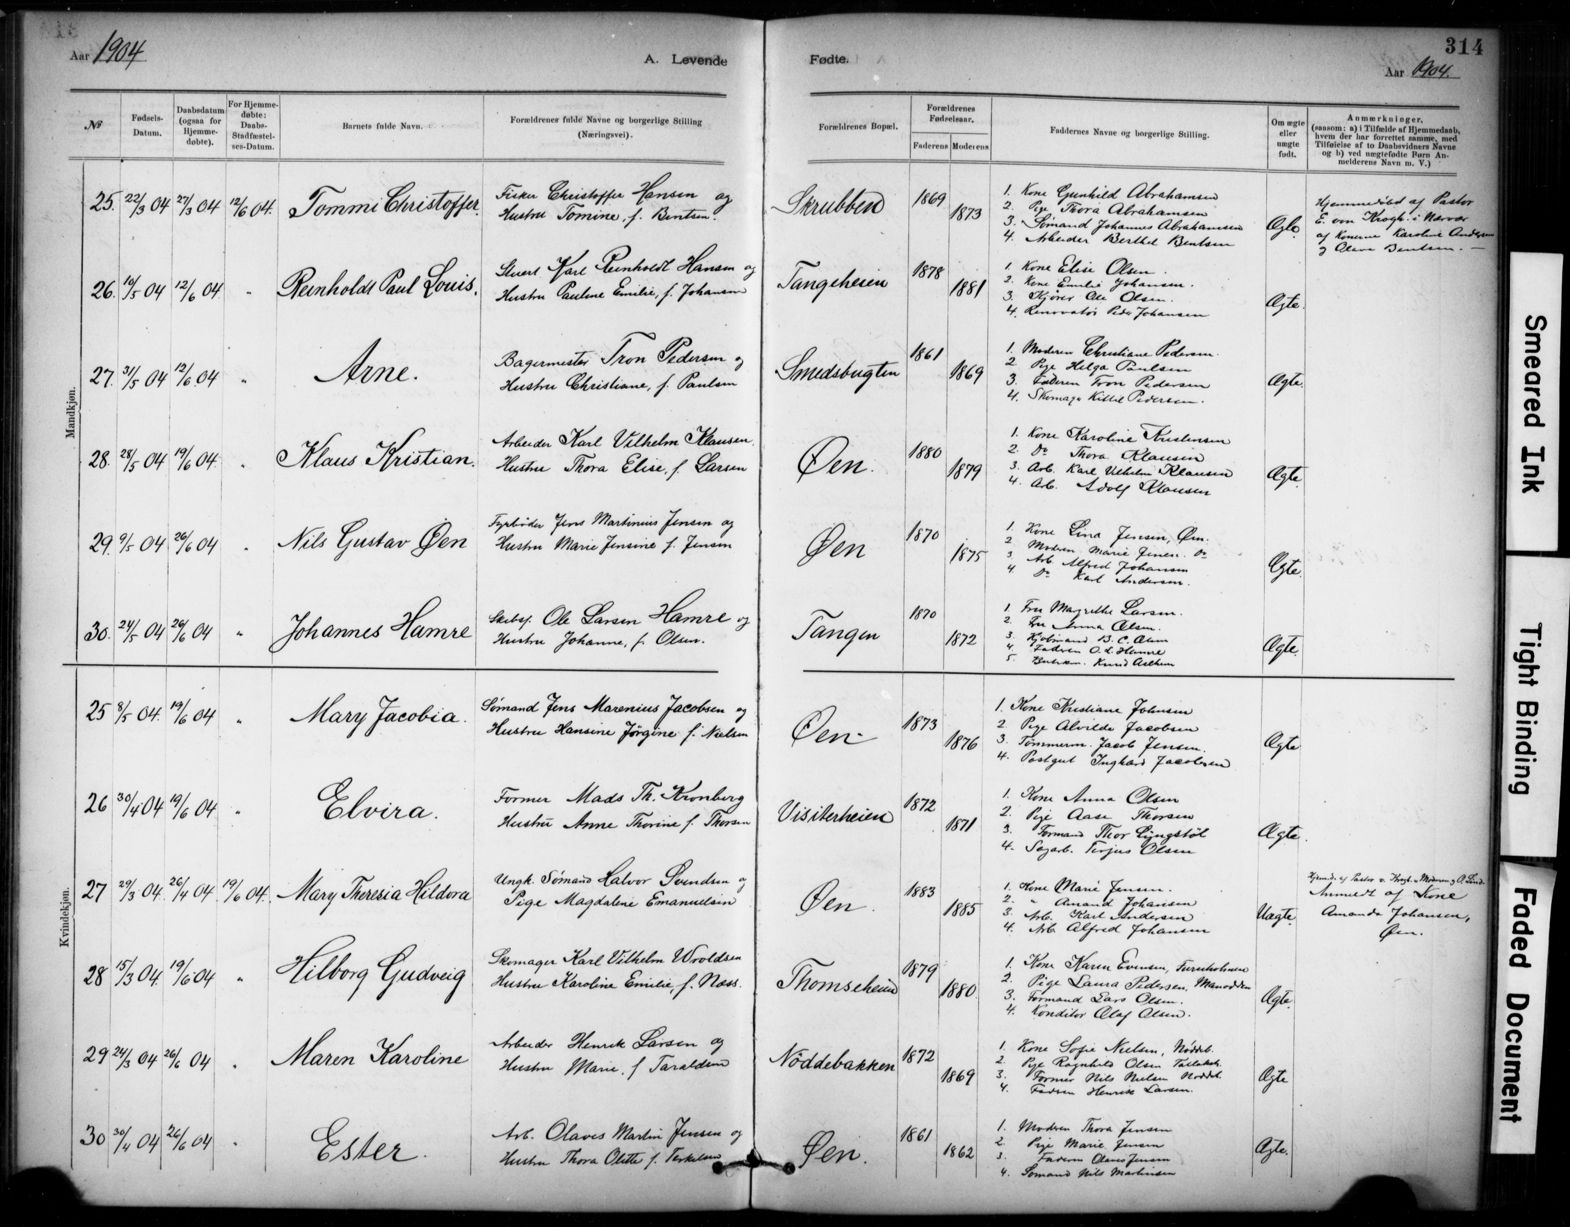 Aar 1904 A. Levende Fødte. 314
Aar 1904.
№ Fødsels-Datum. Daabsdatum (ogsaa for Hjemme-døbte). For Hjemme-døbte: Daabs-Stadfæstel-ses-Datum. Barnets fulde Navn. Forældrenes fulde Navne og borgerlige Stilling (Næringsvei). Forældrenes Bopæl. Forældrenes Fødselsaar. Faderens Moderens Faddernes Navne og borgerlige Stilling. Om ægte eller uægte født. Anmærkninger. (saasom: a) i Tilfælde af Hjemmedaab, hvem der har forrettet samme, med Tilføielse af to Daabsvidners Navne og b) ved uægtefødte Børn An-melderens Navn m. V.)
Mandkjøn.
25. 22/3 04 27/3 04 12/6 04. Tommi Christoffer. Fisker Christoffer Hansen og
Hustru Tomine, f. Bentsen. Skrubben 1869 1873
1. Kone Gunhild Abrahamsen
2. Pige Thora Abrahamsen
3. Sømand Johannes Abrahamsen
4. Arbeider Berthel Bentsen
Ægte
Hjemmedøbt af Pastor
E. von Krogh i Nærvær
af Konerne Karoline Andersen
og Olava Bentsen. —
26. 10/5 04 12/6 04. " Reinholdt Paul Louis. Stuert Karl Reinholdt Hansen og
Hustru Pauline Emilie, f. Johansen Tangeheien 1878 1881
1. Kone Elise Olsen.
2. Kone Emilie Johansen.
3. Kjører Ole Olsen.
4. Renovatør Peder Johansen
Ægte.
27. 31/5 04 12/6 04 " Arne. Bagermester Tron Pedersen og
Hustru Christiane, f. Paulsen Smedsbugten 1861 1869
1. Moderen Christiane Pedersen.
2. Pige Helga Paulsen
3. Faderen Tron Pedersen
4. Skomager Kittil Pedersen.
Ægte.
28. 28/5 04 19/6 04. " Klaus Kristian. Arbeider Karl Vilhelm Klausen.
Hustru Thora Elise, f. Larsen Øen. 1880 1879
1. Kone Karoline Kristensen
2. Do Thora Klausen
3. Arb. Karl Vilhelm Klausen
4. Arb. Adolf Klausen
Ægte.
29. 9/5 04 26/6 04 " Nils Gustav Øen Fyrbøder Jens Martinius Jensen og
Hustru Marie Jensine f. Jensen Øen 1870 1875
1. Kone Lina Jensen, Øen.
2. Modren Marie Jensen. Do
3. Arb. Alfred Johansen
4. Do Karl Andersen.
Ægte.
30. 24/5 04 26/6 04 " Johannes Hamre Skibsf. Ole Larsen Hamre og
Hustru Johanne, f. Olsen. Tangen 1870 1872
1. Fru Margrethe Larsen.
2. Fru Anna Olsen.
3. B. C. Olsen
4. Fadren O. L. Hamre
5. Knud
Ægte.
Kvindekjøn.
25 8/5 04. 19/6 04 " Mary Jacobia. Sømand Jens Marenius Jacobsen og
Hustru Hansine Jørgine f. Nielsen Øen. 1873 1876
1. Kone Kristiane Johnsen
2. Pige Alvilde Jacobsen
3. Tømmerm. Jacob Jensen.
4. Postgut Inghard Jacobsen
Ægte
26 30/4 04 19/6 04 " Elvira. Former Mads Th. Kronberg
Hustru Anne Thorine f. Thorsen Visiterheien 1872 1871
1. Kone Anna Olsen
2. Pige Aase Thorsen
3. Formand Thor Lyngstøl
4. Sagarb. Terjus Olsen
Ægte.
27 29/3 04. 26/4 04. 19/6 04. Mary Theresia Hildora Ungk. Sømand Halvor Svendsen og
Pige Magdalene Emanuelsen Øen. 1883 1885
1. Kone Marie Jensen.
2. " Amand Johansen
3. Arb. Karl Andersen
4. Arb. Alfred Johansen
Uægte.
Hjemd. af Pastor v. Krogh.
Anmeldt af Kone
Amanda Johansen,
Øen.
28 15/3 04. 19/6 04 " Hilborg Gudveig Skomager Karl Vilhelm Wroldsen
Hustru Karoline Emilie, f. Næss. Thomseheien 1879 1880.
1. Kone Karen Evensen, Furuholmen
2. Pige Laura Pedersen,
3. Formand Lars Olsen.
4. Konditor Olaf Olsen.
Ægte.
29 24/3 04 26/6 04 " Maren Karoline Arbeider Henrik Larsen og
Hustru Marie, f. Taraldsen Nöddebakken 1872 1869
1. Kone Sofie Nielsen, Nøddeb.
2. Pige Ragnhild Olsen
3. Former Nils Nielsen Noddeb.
4. Fadren Henrik Larsen.
Ægte
30 30/4 04 26/6 04 " Ester. Arb. Olaves Martin Jensen og
Hustru Thora Olette f. Terkelsen Øen. 1861 1862
1. Modren Thora Jensen
2. Pige Marie Jensen
3. Fadern Olaves Jensen
4. Sømand Nils Martinsen
Ægte.
Smeared Ink
Tight Binding
Faded Document